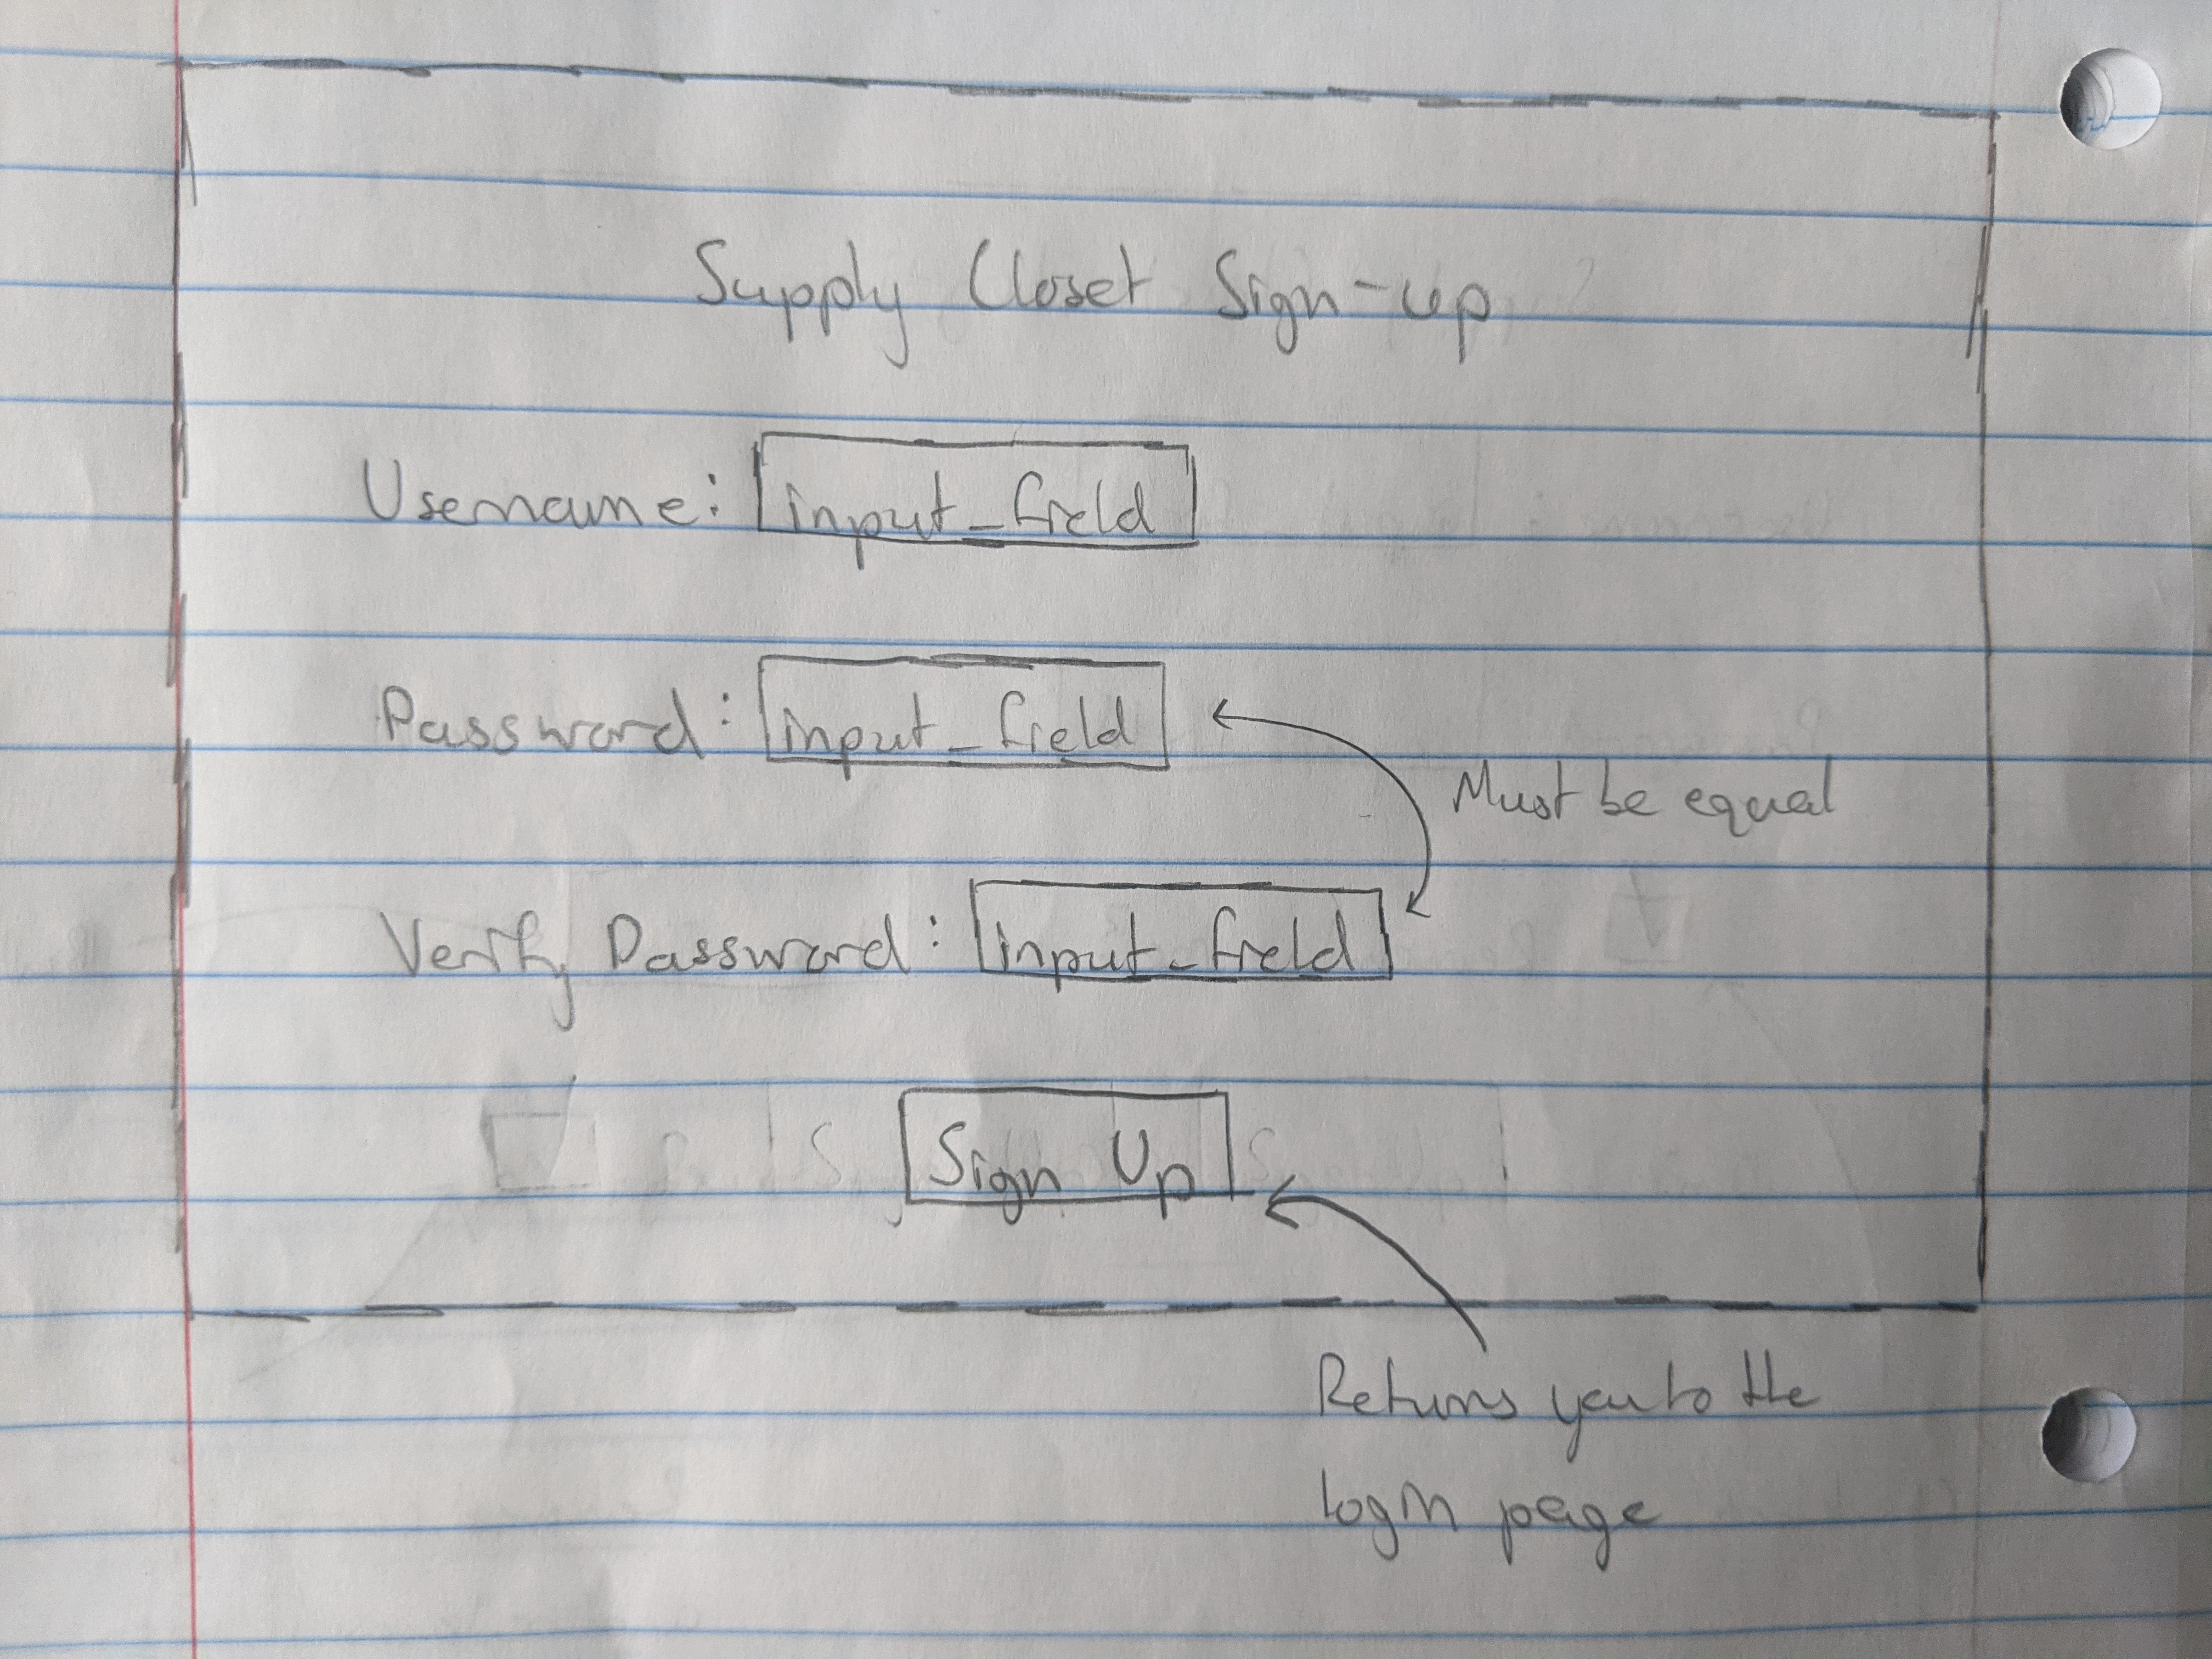 Supply Closet Sign-up
Username: input_field
Password: input_field
Must be equal
Verify Password: input_field
Sign Up
Returns you to the
login page